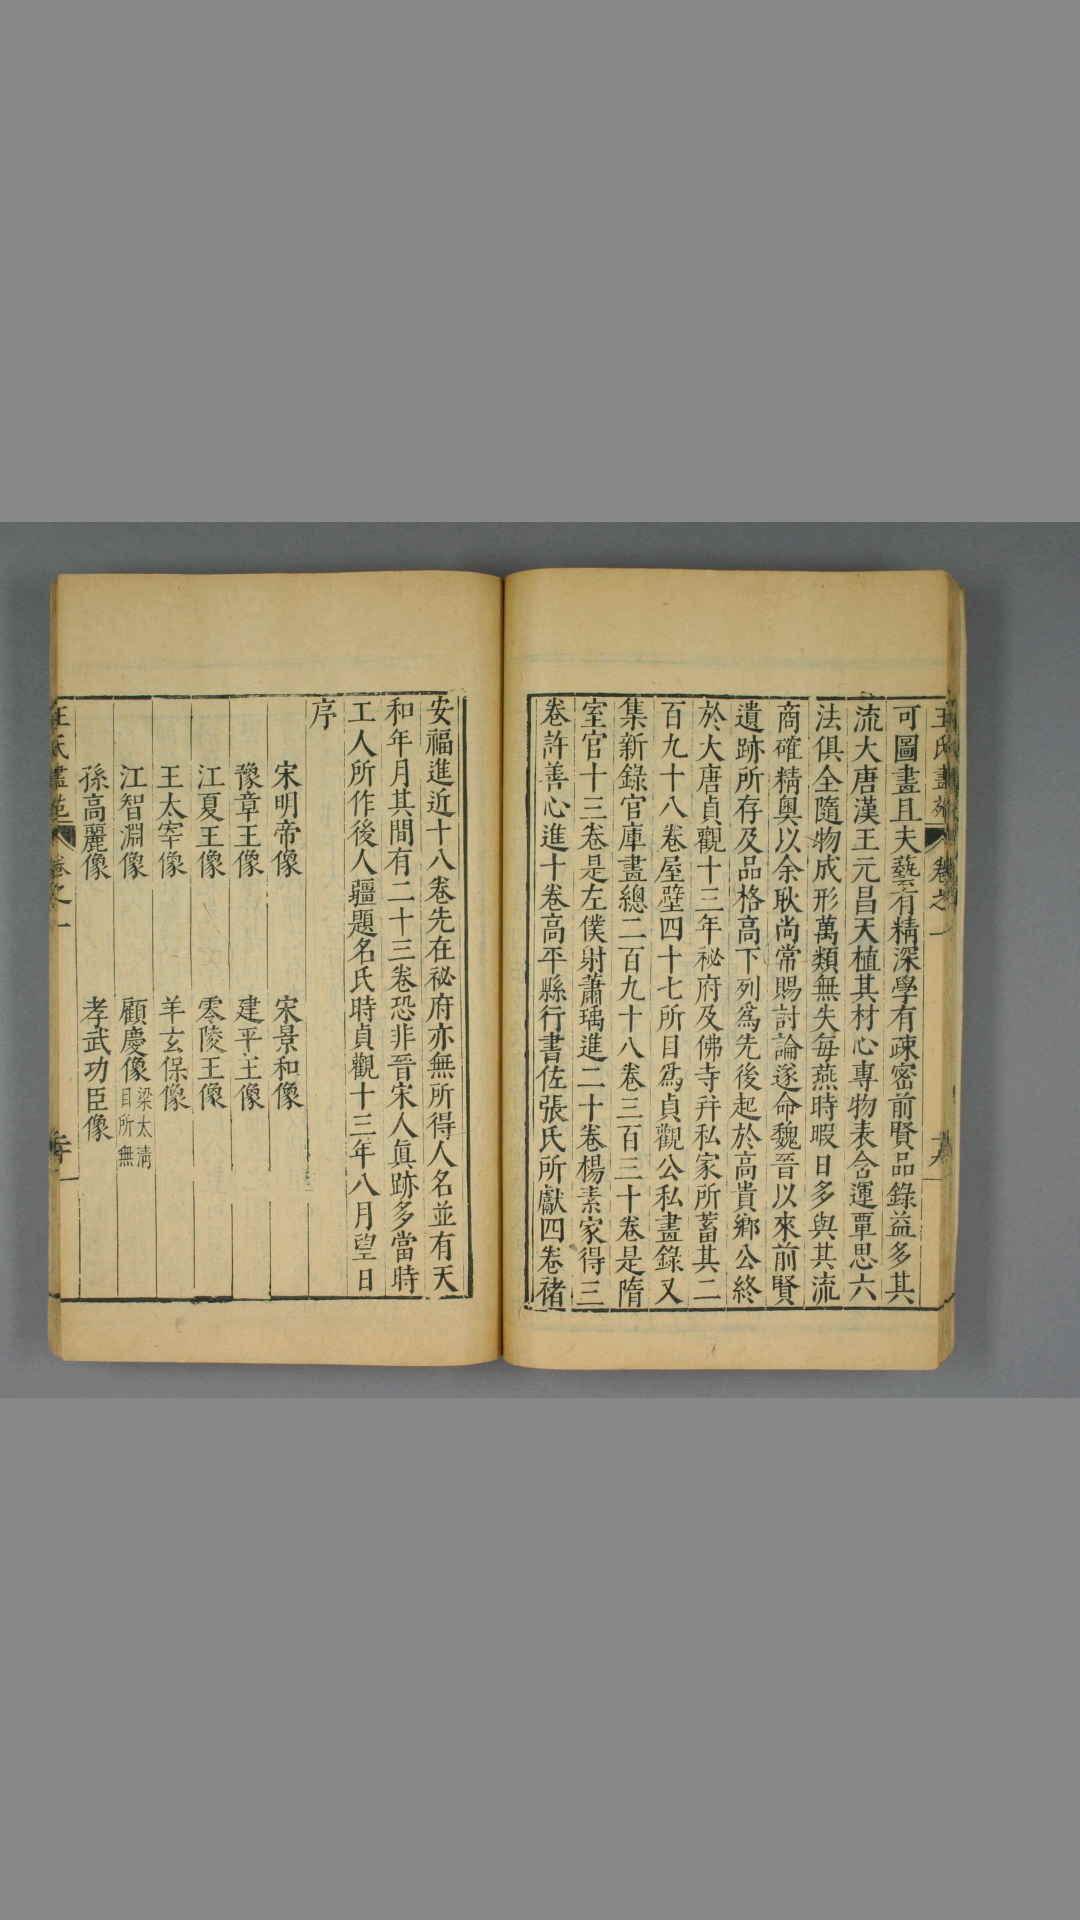 王氏畫苑 卷之一
可圖畫且夫藝有精深學有疎密前賢品錄益多其
流大唐漢王元昌天植其材心專物表含運覃思六
法俱全隨物成形萬類無失每燕時暇日多與其流
商確精奧以余耿尚常賜討論遂命魏晉以來前賢
遺跡所存及品格高下列爲先後起於高貴鄉公終
於大唐貞觀十三年祕府及佛寺幷私家所蓄其二
百九十八卷屋壁四十七所目爲貞觀公私畫錄又
集新錄官庫畫總二百九十八卷三百三十卷是隋
室官十三卷是左僕射蕭瑀進二十卷楊素家得三
卷許善心進十卷高平縣行書佐張氏所獻四卷褚
安福進近十八卷先在祕府亦無所得人名並有天
和年月其間有二十三卷恐非晉宋人眞跡多當時
工人所作後人疆題名氏時貞觀十三年八月望日
序
宋明帝像 宋景和像
豫章王像 建平王像
江夏王像 零陵王像
王太宰像 羊玄保像
江智淵像 顧慶像 梁太清
目所無
孫高麗像 孝武功臣像
王氏畫苑 卷之一